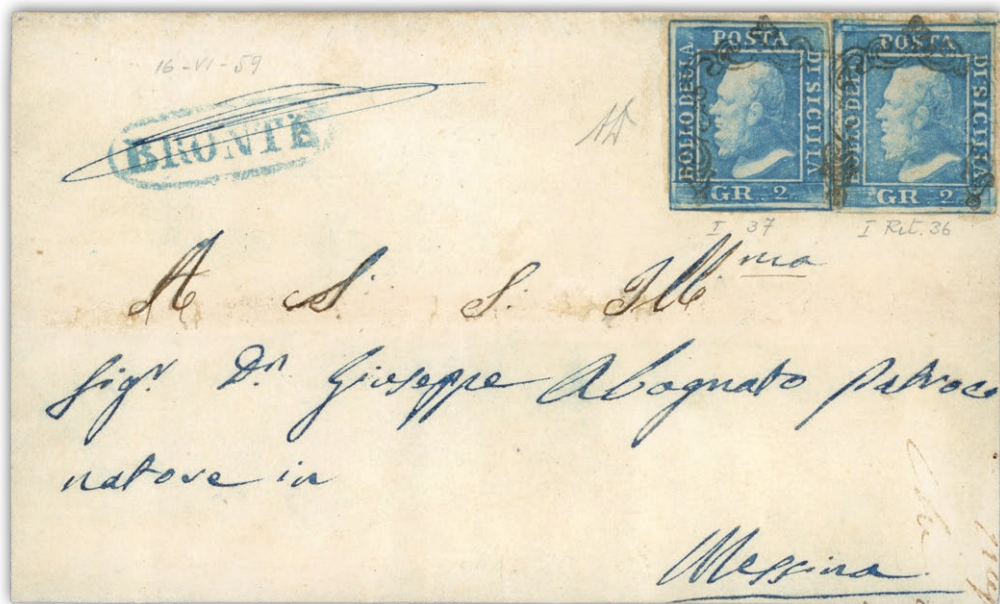 16-VI-59
BRONTE
BOLLO DELLA POSTA DI SICILIA
GR. 2.
BOLLO DELLA POSTA DI SICILIA
GR. 2.
I 37
I Rit. 36
A S. S. Ill.ma
Sigr Dn Giuseppe Abognato Patroci
natore in
Messina